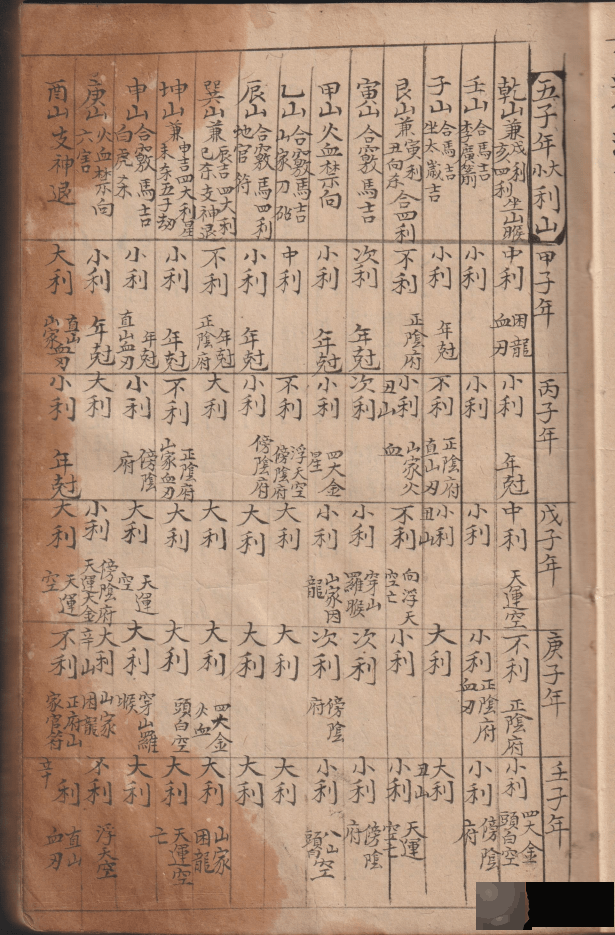 五子年大小利山 甲子年 丙子年 戊子年 庚子年 壬子年
乾山兼戌利亥四利坐山睺 中利 困龍血刃 小利 年尅 中利 天運空 不利 正陰府 小利 四大金頭白空
壬山合馬吉李廣箭 小利 小利 小利 小利 正陰府血刃 小利 傍陰府
子山合馬吉坐太歲吉 小利 年尅 不利 正陰府直山刃 小利丑山 大利 大利丑山
艮山兼寅利丑向杀合四利 不利 正陰府 小利丑山 山家火血 不利 向浮天空亡 小利 小利 天運空亡
寅山合竅馬吉 次利 年尅 次利 小利 穿山羅睺 次利 小利 傍陰府
甲山火血禁向 小利 年尅 小利 四大金星 小利 山家困龍 次利 傍陰府 小利 八山空頭
乙山合竅馬吉山家刀砧 中利 不利 浮天空傍陰府 大利 大利 大利
辰山合竅馬四利地官符 小利 年尅 小利 傍陰府 大利 大利 大利
巽山兼辰吉四大利巳杀支神退 不利 年尅正陰府 大利 大利 大利 四大金火血 大利 山家困龍
坤山兼申吉四大利星未杀五子劫 小利 年尅 不利 正陰府山家血刃 大利 大利 頭白空 大利 天運空亡
申山合竅馬吉白虎杀 小利 年尅直山血刃 小利 傍陰府 大利 天運空 大利 穿山羅睺 大利
庚山火血禁向六害 小利 年尅 大利 小利 傍陰府天運大金 大利辛山 山家困龍 不利 浮天空
酉山支神退 大利 直山血刃山家 小利 年尅 大利 天運空 不利 正府山家官符 利 直山血刃